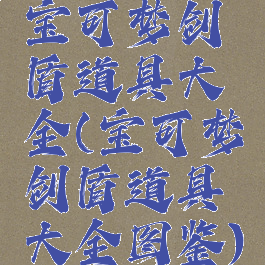 宝可梦刽
盾道具大
全(宝可梦
刽盾道具
大全图鉴)